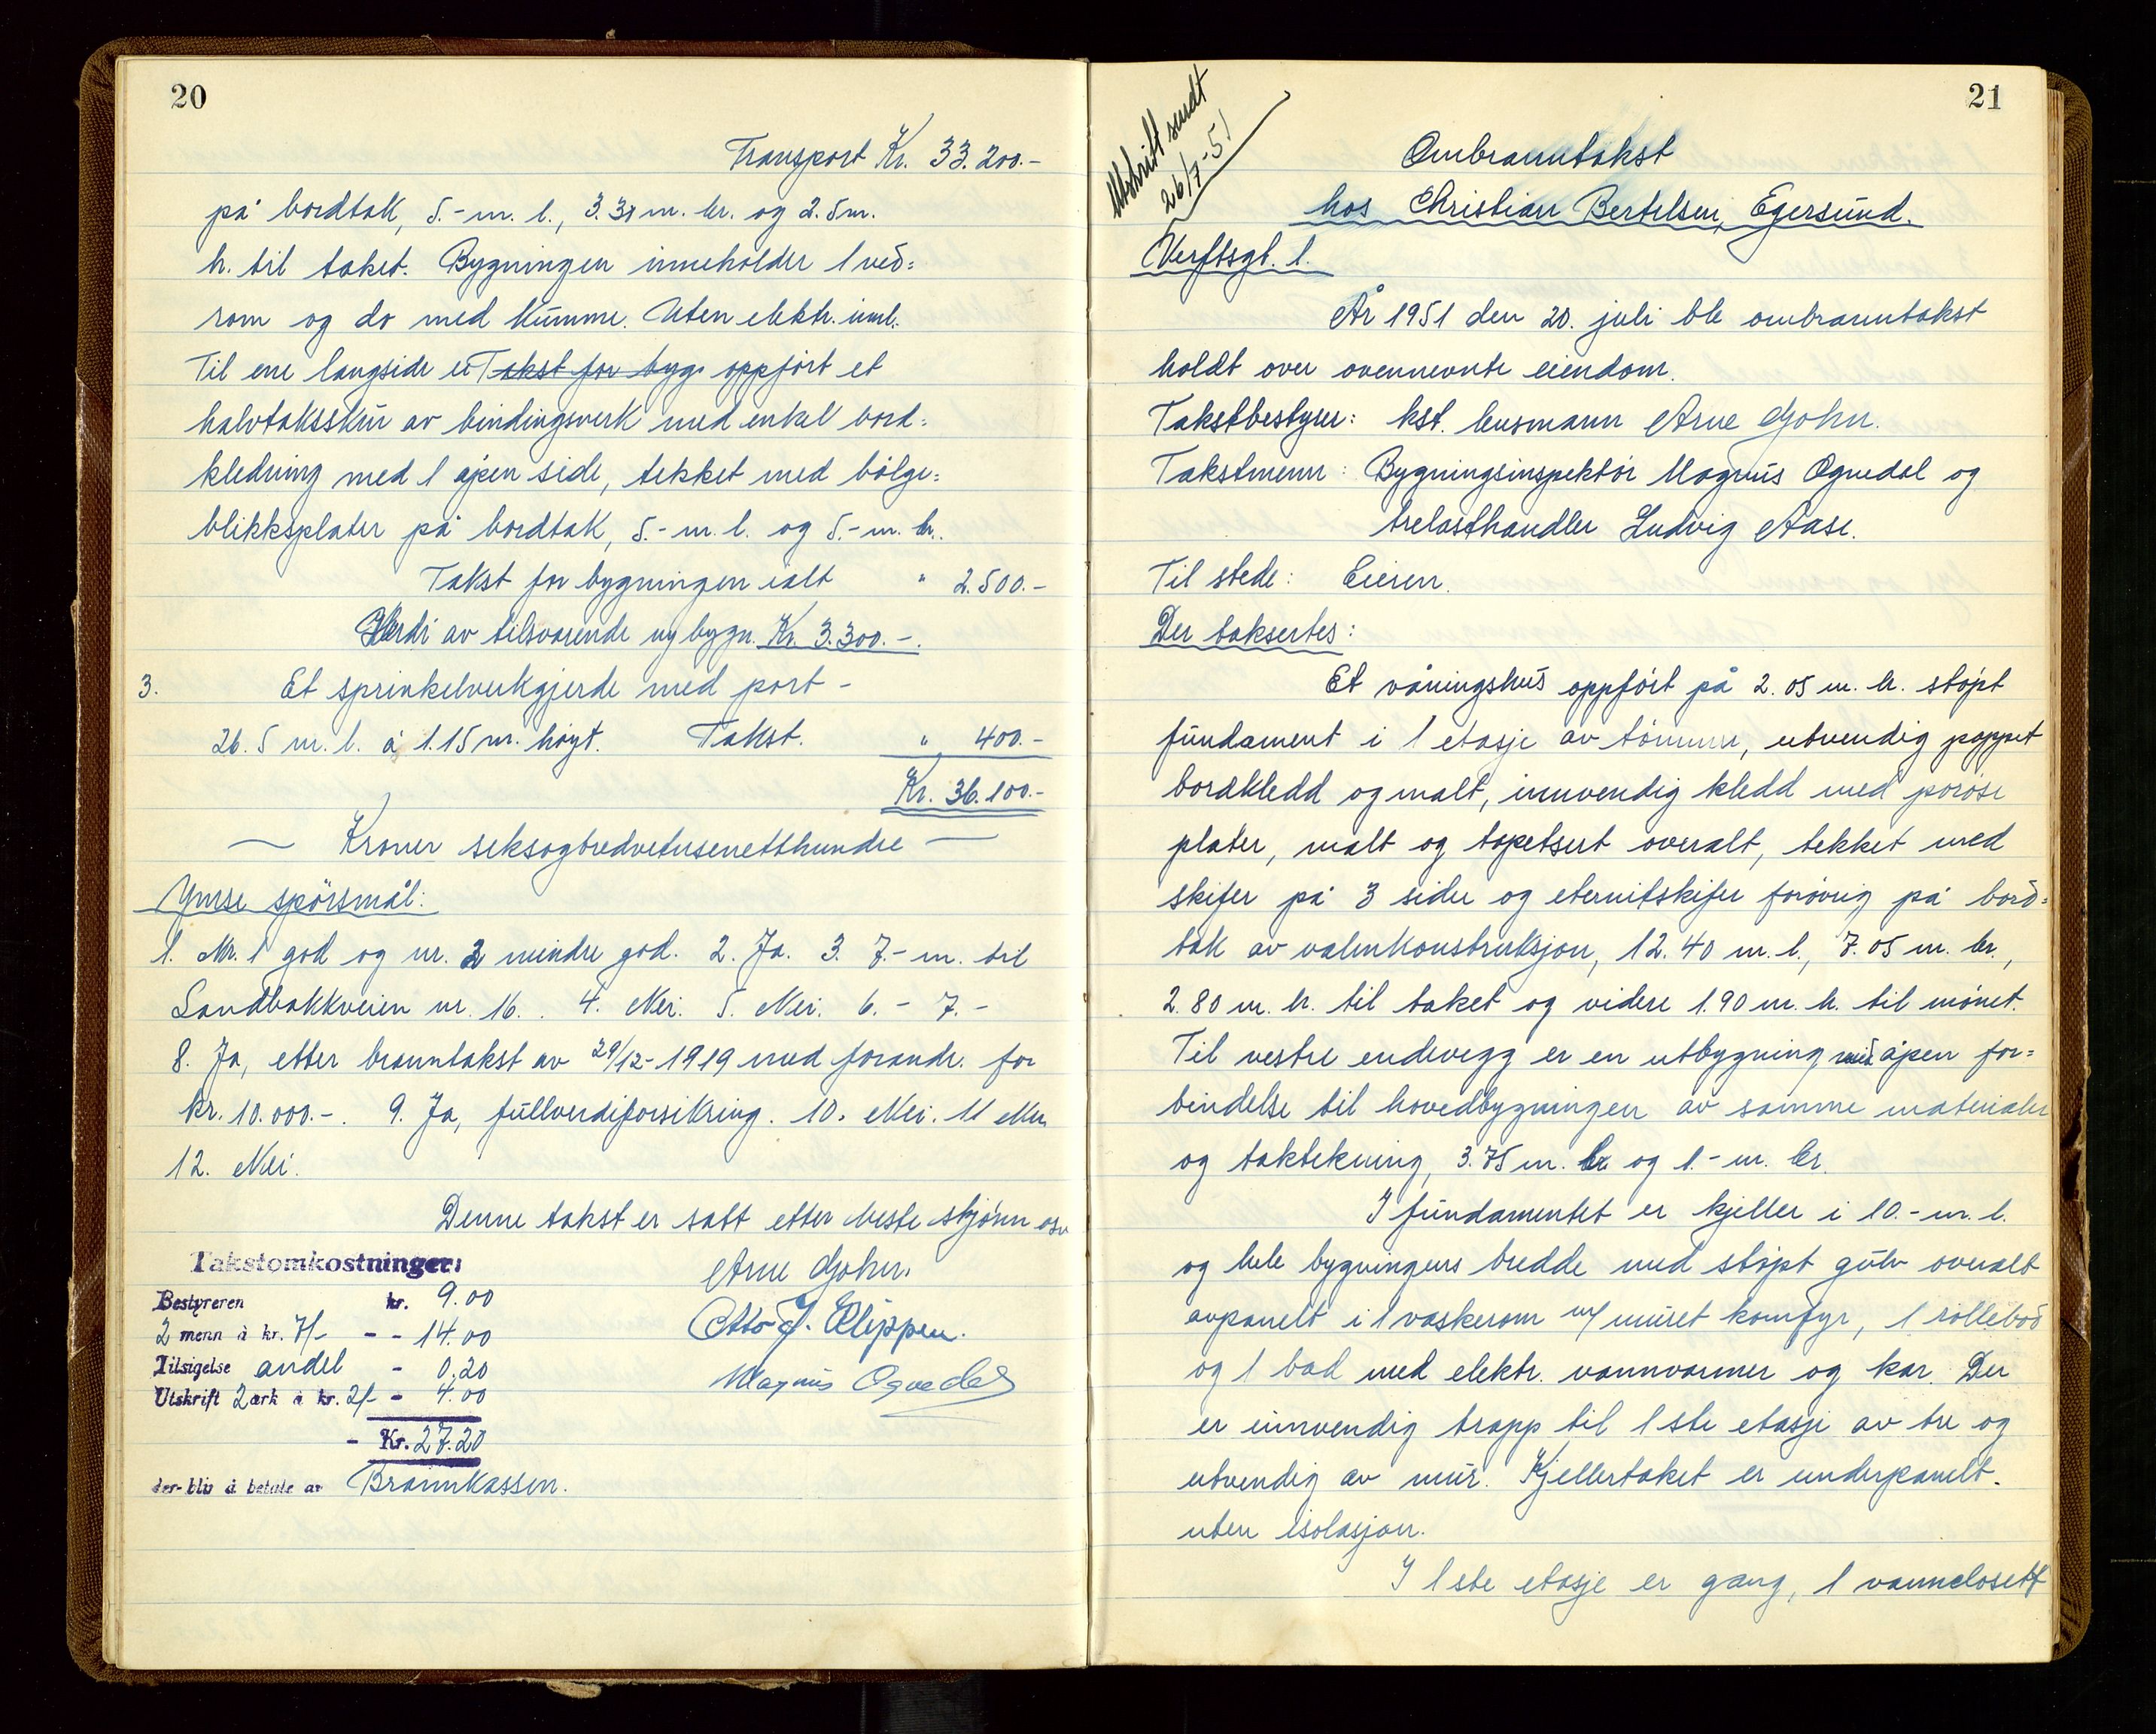 20
Transport Kr. 33.200.-
på bordtak, 5.- m. l., 3.30 m. br. og 2.5 m.
h. til taket. Bygningen inneholder 1 ved=
rom og do med kumme. Uten elektr. innl.
Til ene langside er Takst for byg. oppført et
halvtaksskur av bindingsverk med enkel bord=
kledning med 1 åpen side, tekket med bølge=
blikksplater på bordtak, 5.- m. l. og 5.- m. br.
Takst for bygningen ialt " 2.500.-
Verdi av tilsvarende ny bygn. Kr. 3.300.-.
3. Et sprinkelverkgjerde med port -
26.5 m. l. à 1.15 m. høyt. Takst. " 400.-
Kr. 36.100.-
— Kroner seksogtredvetusenetthundre —
Ymse spørsmål:
1. Nr. 1 god og nr. 2 mindre god. 2. Ja. 3. 7.- m. til
Sandbakkveien nr. 16. . 4. Nei. 5. Nei. 6. - 7. -
8. Ja, etter branntakst av 29/12-1919 med forandr. for
kr. 10.000.-. 9. Ja, fullverdiforsikring. 10. Nei. 11 Nei
12. Nei.
Denne takst er satt etter beste skjønn osv
Takstomkostninger:
Bestyreren kr. 9.00
2 menn à kr. 7/- - - 14.00
Tilsigelse andel - 0.20
Utskrift 2 ark à kr. 2/- - 4.00
- Kr. 27.20
der blir å betale av Brannkassen.
Arne Gjohn.
Otto J. Klippen.
Magnus Ognedal
21
Utskrift sendt
26/7-51
Ombranntakst
hos Christian Bertelsen, Egersund.
Verftsgt. 1.
År 1951 den 20. juli ble ombranntakst
holdt over ovennevnte eiendom.
Takstbestyrer: kst. lensmann Arne Gjohn.
Takstmenn: Bygningsinspektør Magnus Ognedal og
trelasthandler Ludvig Aase.
Til stede: Eieren.
Der taksertes:
Et våningshus oppført på 2.05 m. h. støpt
fundament i 1 etasje av tømmer, utvendig pappet
bordkledd og malt, innvendig kledd med porøse
plater, malt og tapetsert overalt, tekket med
skifer på 3 sider og eternitskifer forøvrig på bord=
tak av valmkonstruksjon, 12.40 m. l., 7.05 m. br.,
2.80 m. h. til taket og videre 1.90 m. h. til mønet.
Til vestre endevegg er en utbygning med åpen for=
bindelse til hovedbygningen av samme materialer
og taktekning, 3.75 m. br og 1.- m. br.
I fundamentet er kjeller i 10.- m. l.
og hele bygningens bredde med støpt gulv overalt
avpanelt i 1 vaskerom m/ muret komfyr, 1 rollebod
og 1 bad med elektr. vannvarmer og kar. Der
er innvendig trapp til 1ste etasje av tre og
utvendig av mur. Kjellertaket er underpanelt.
uten isolasjon.
I 1ste etasje er gang, 1 vannclosett